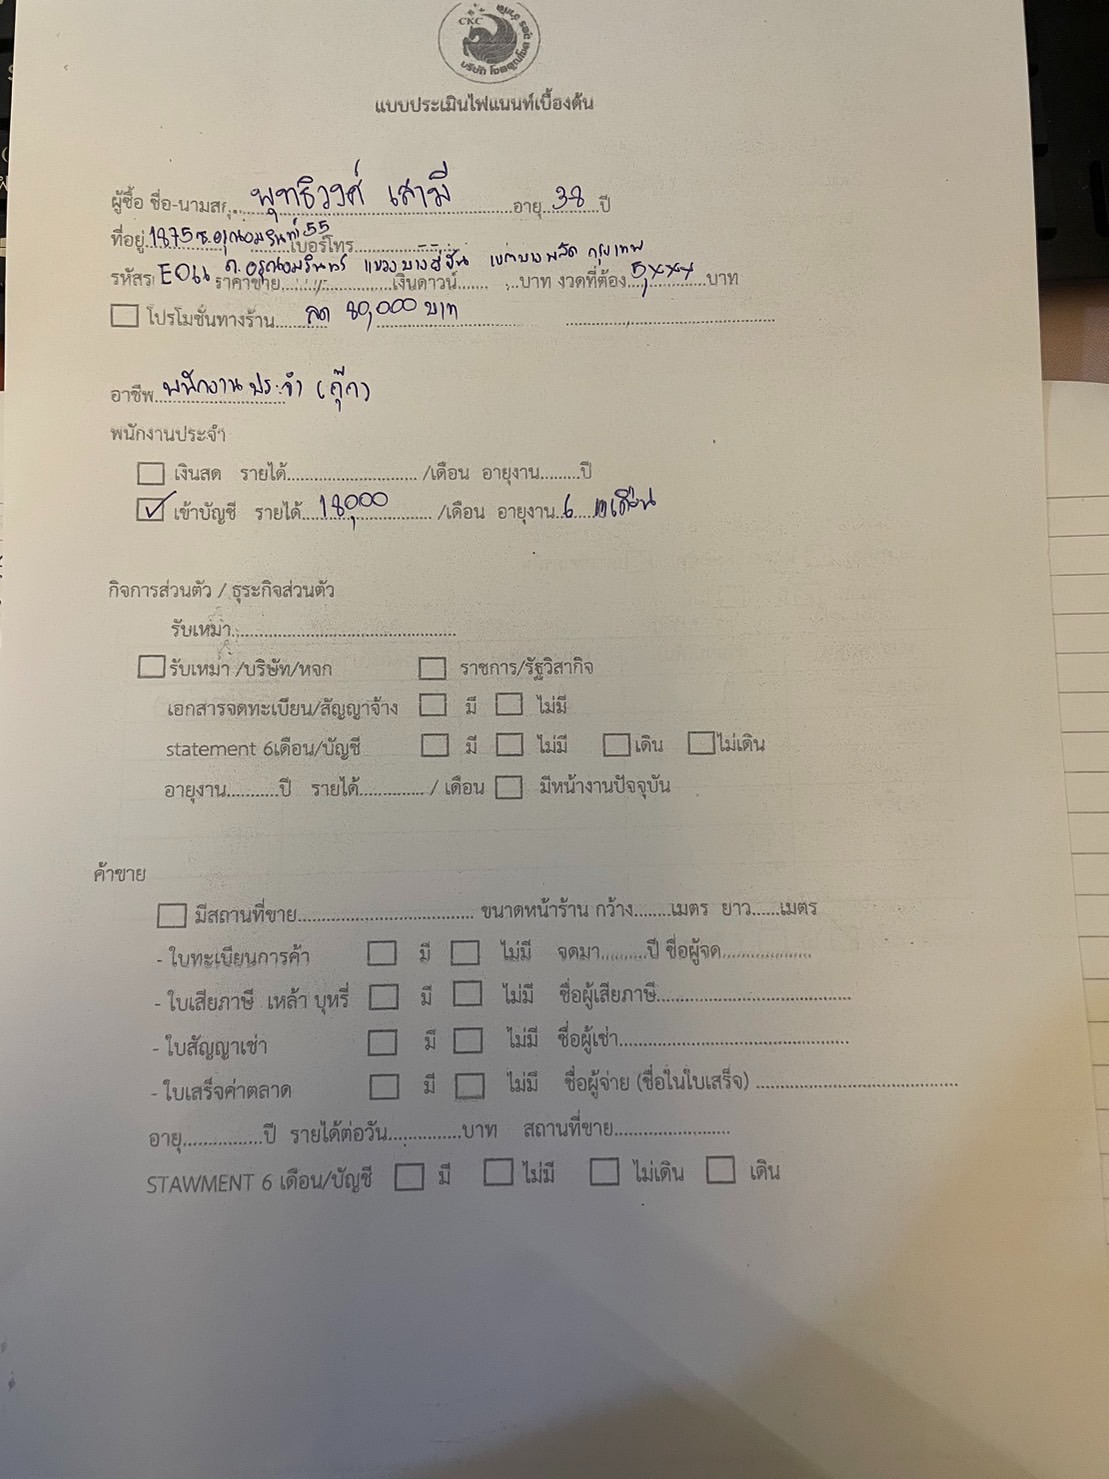 CKC
บริษัท โชคคูณโชค
แบบประเมินไฟแนนท์เบื้องต้น
ผู้ซื้อ ชื่อ-นามส พุทธิวงศ์ เสามี อายุ 38 ปี
ที่อยู่ 1875 ซ.อรุณอมรินทร์ 55 เบอร์โทร
ถ.อรุณอมรินทร์ แขวงบางยี่ขัน เขตบางพลัด กรุงเทพ
รหัสร ราคาขาย เงินดาวน์ บาท งวดที่ต้อง 5,xxx บาท
☐ โปรโมชั่นทางร้าน ลด 80,000 บาท
อาชีพ พนักงานประจำ (กุ๊ก)
พนักงานประจำ
☐ เงินสด รายได้ /เดือน อายุงาน ปี
☑ เข้าบัญชี รายได้ 18,000 /เดือน อายุงาน 6 เดือน
กิจการส่วนตัว / ธุระกิจส่วนตัว
รับเหมา
☐ รับเหมา /บริษัท/หจก ☐ ราชการ/รัฐวิสากิจ
เอกสารจดทะเบียน/สัญญาจ้าง ☐ มี ☐ ไม่มี
statement 6เดือน/บัญชี ☐ มี ☐ ไม่มี ☐ เดิน ☐ ไม่เดิน
อายุงาน...........ปี รายได้............. / เดือน ☐ มีหน้างานปัจจุบัน
ค้าขาย
☐ มีสถานที่ขาย................................... ขนาดหน้าร้าน กว้าง........เมตร ยาว......เมตร
- ใบทะเบียนการค้า ☐ มี ☐ ไม่มี จดมา..........ปี ชื่อผู้จด..................
- ใบเสียภาษี เหล้า บุหรี่ ☐ มี ☐ ไม่มี ชื่อผู้เสียภาษี.......................................
- ใบสัญญาเช่า ☐ มี ☐ ไม่มี ชื่อผู้เช่า..............................................
- ใบเสร็จค่าตลาด ☐ มี ☐ ไม่มี ชื่อผู้จ่าย (ชื่อในใบเสร็จ) ........................................
อายุ...............ปี รายได้ต่อวัน..............บาท สถานที่ขาย.......................
STAWMENT 6 เดือน/บัญชี ☐ มี ☐ ไม่มี ☐ ไม่เดิน ☐ เดิน